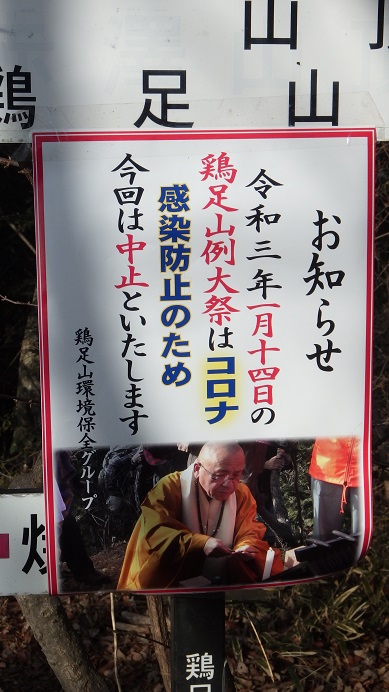 山頂
鶏足山
お知らせ
令和三年一月十四日の
鶏足山例大祭はコロナ
感染防止のため
今回は中止といたします
鶏足山環境保全グループ
鶏